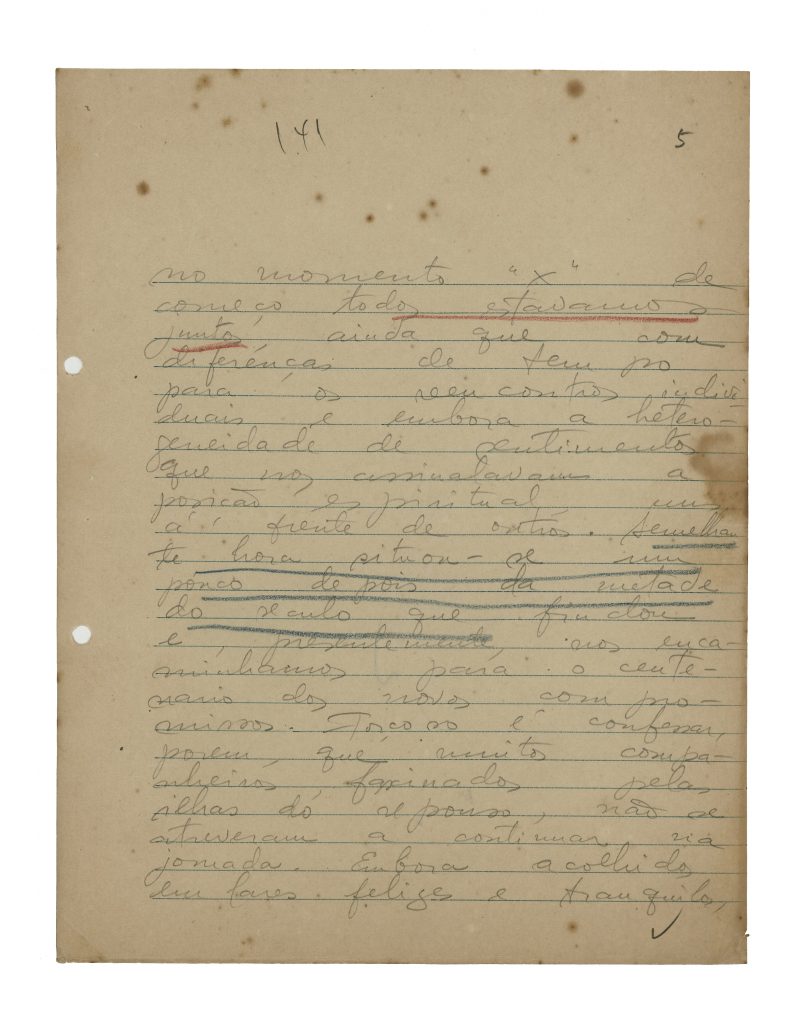 141 5
no momento "X" de
começo todos estavamos
juntos, ainda que com
diferenças de tempo
para os reencontros indivi-
duais e embora a hetero-
geneidade de sentimentos
que nos assinalavam a
posição espiritual, uns
á frente de outros. Semelhan
te hora situou-se um
pouco depois da metade
do seculo que findou
e, presentemente, nos enca-
minhamos para o cente-
nario dos novos compro-
missos. Forçoso é confessar,
porem, que muitos compa-
nheiros, fascinados pelas
ilhas do repouso, não se
atreveram a continuar na
jornada. Embora acolhidos
em lares felizes e tranquilos,